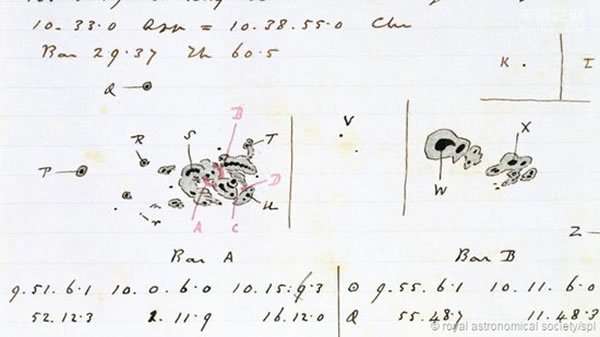 10.33.0 App = 10.38.55.0
Bar 29.37 Th 60.5
Q
K
I
B
V
R
S
T
X
P
D
W
U
A
C
Z
Bar A
Bar B
9.51.6.1 10.0.6.0 10.15.9.3 ⊙ 9.55.6.1 10.11.6.0
52.12.3 2.11.9 16.12.0 Q 55.48.7 11.48.3
© royal astronomical society/spl